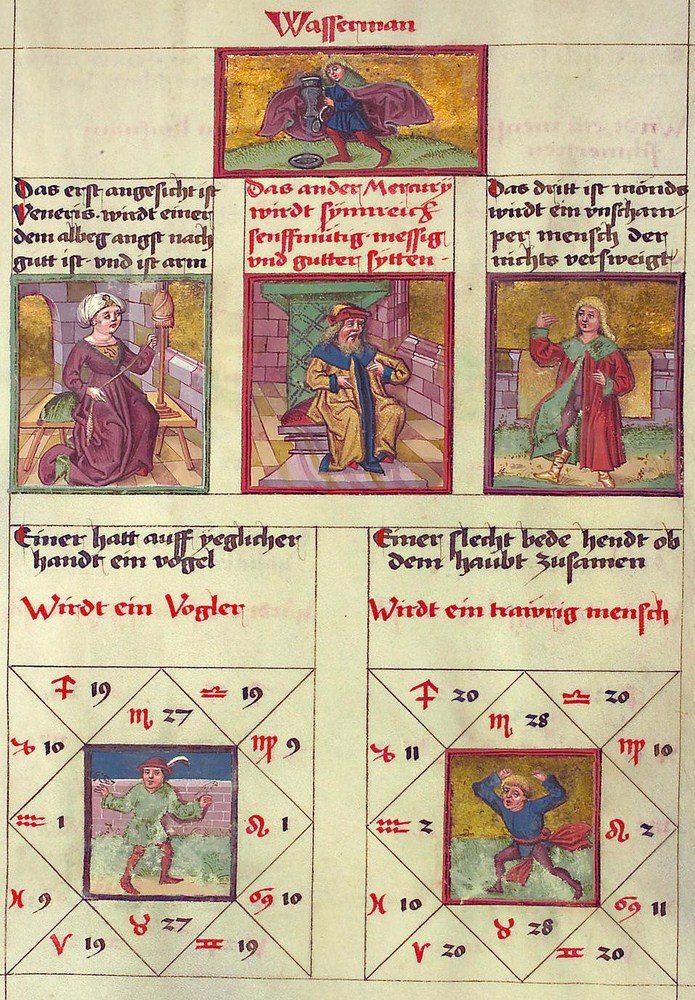 Wasserman
Das erst angesicht ist
Veneris. wirdt einer
dem albeg angst nach
gutt ist. vnd ist arm
Das ander Mercury
wirdt synnreich
senfftmutig. messig
vnd gutter sytten.
Das dritt ist monds
wirdt ein vnscham-
per mensch der
nichts versweigt
Einer hatt auff yeglicher
handt ein vogel
Wirdt ein Vogler
♐ 19 ♎ 19
♏ 27
♑ 10 ♍ 9
♒ 1 ♌ 1
♓ 9 ♋ 10
♉ 27
♈ 19 ♊ 19
Einer slecht bede hendt ob
dem haubt zusamen
Wirdt ein trawrig mensch
♐ 20 ♎ 20
♏ 28
♑ 11 ♍ 10
♒ 2 ♌ 2
♓ 10 ♋ 11
♉ 28
♈ 20 ♊ 20